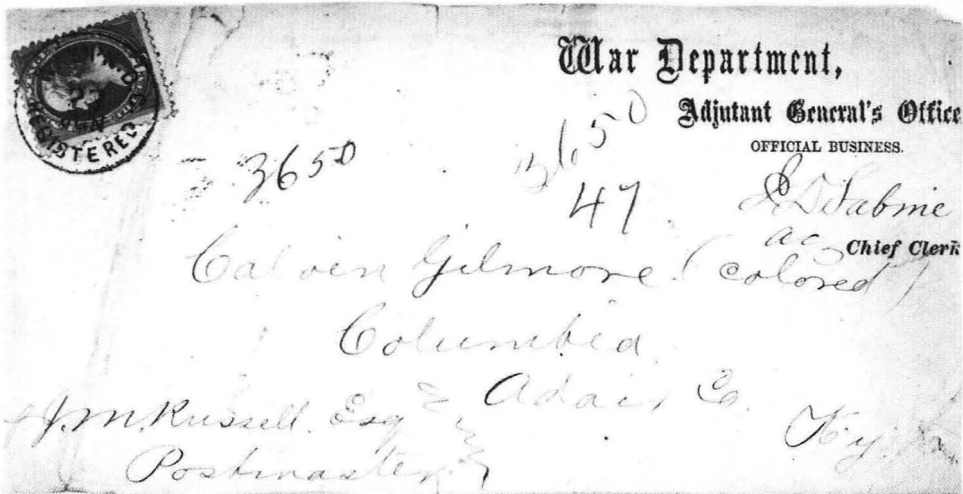 War Department,
Adjutant General's Office
OFFICIAL BUSINESS.
REGISTERED
3650
3650
47
Sabine
ac Chief Clerk
Calvin Gilmore (colored)
Columbia
Adair Co.
Ky.
J. M. Russell. Esq
Postmaster